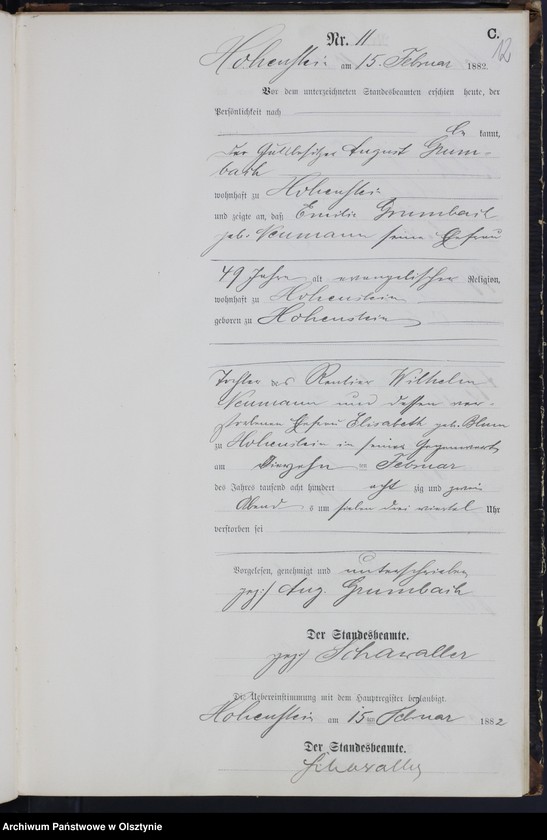 C.
12
Nr. 11
Hohenstein am 15. Februar 1882.
Vor dem unterzeichneten Standesbeamten erschien heute, der
Persönlichkeit nach
be kannt,
der Gutsbesitzer August Grum-
bach
wohnhaft zu Hohenstein
und zeigte an, daß Emilie Grumbach
geb. Neumann seine Ehefrau
49 Jahre alt evangelischer Religion,
wohnhaft zu Hohenstein
geboren zu Hohenstein
Tochter des Rentier Wilhelm
Neumann und dessen ver-
storbenen Ehefrau Elisabeth geb. Blum
zu Hohenstein in seiner Gegenwart
am Vierzehn ten Februar
des Jahres tausend acht hundert acht zig und zwei
Abend s um sieben drei viertel Uhr
verstorben sei
Vorgelesen, genehmigt und unterschrieben
gez:/ Aug. Grumbach
Der Standesbeamte.
gez:/ Schawaller
Die Uebereinstimmung mit dem Hauptregister beglaubigt.
Hohenstein am 15 ten Februar 1882
Der Standesbeamte.
Schawaller
Archiwum Państwowe w Olsztynie